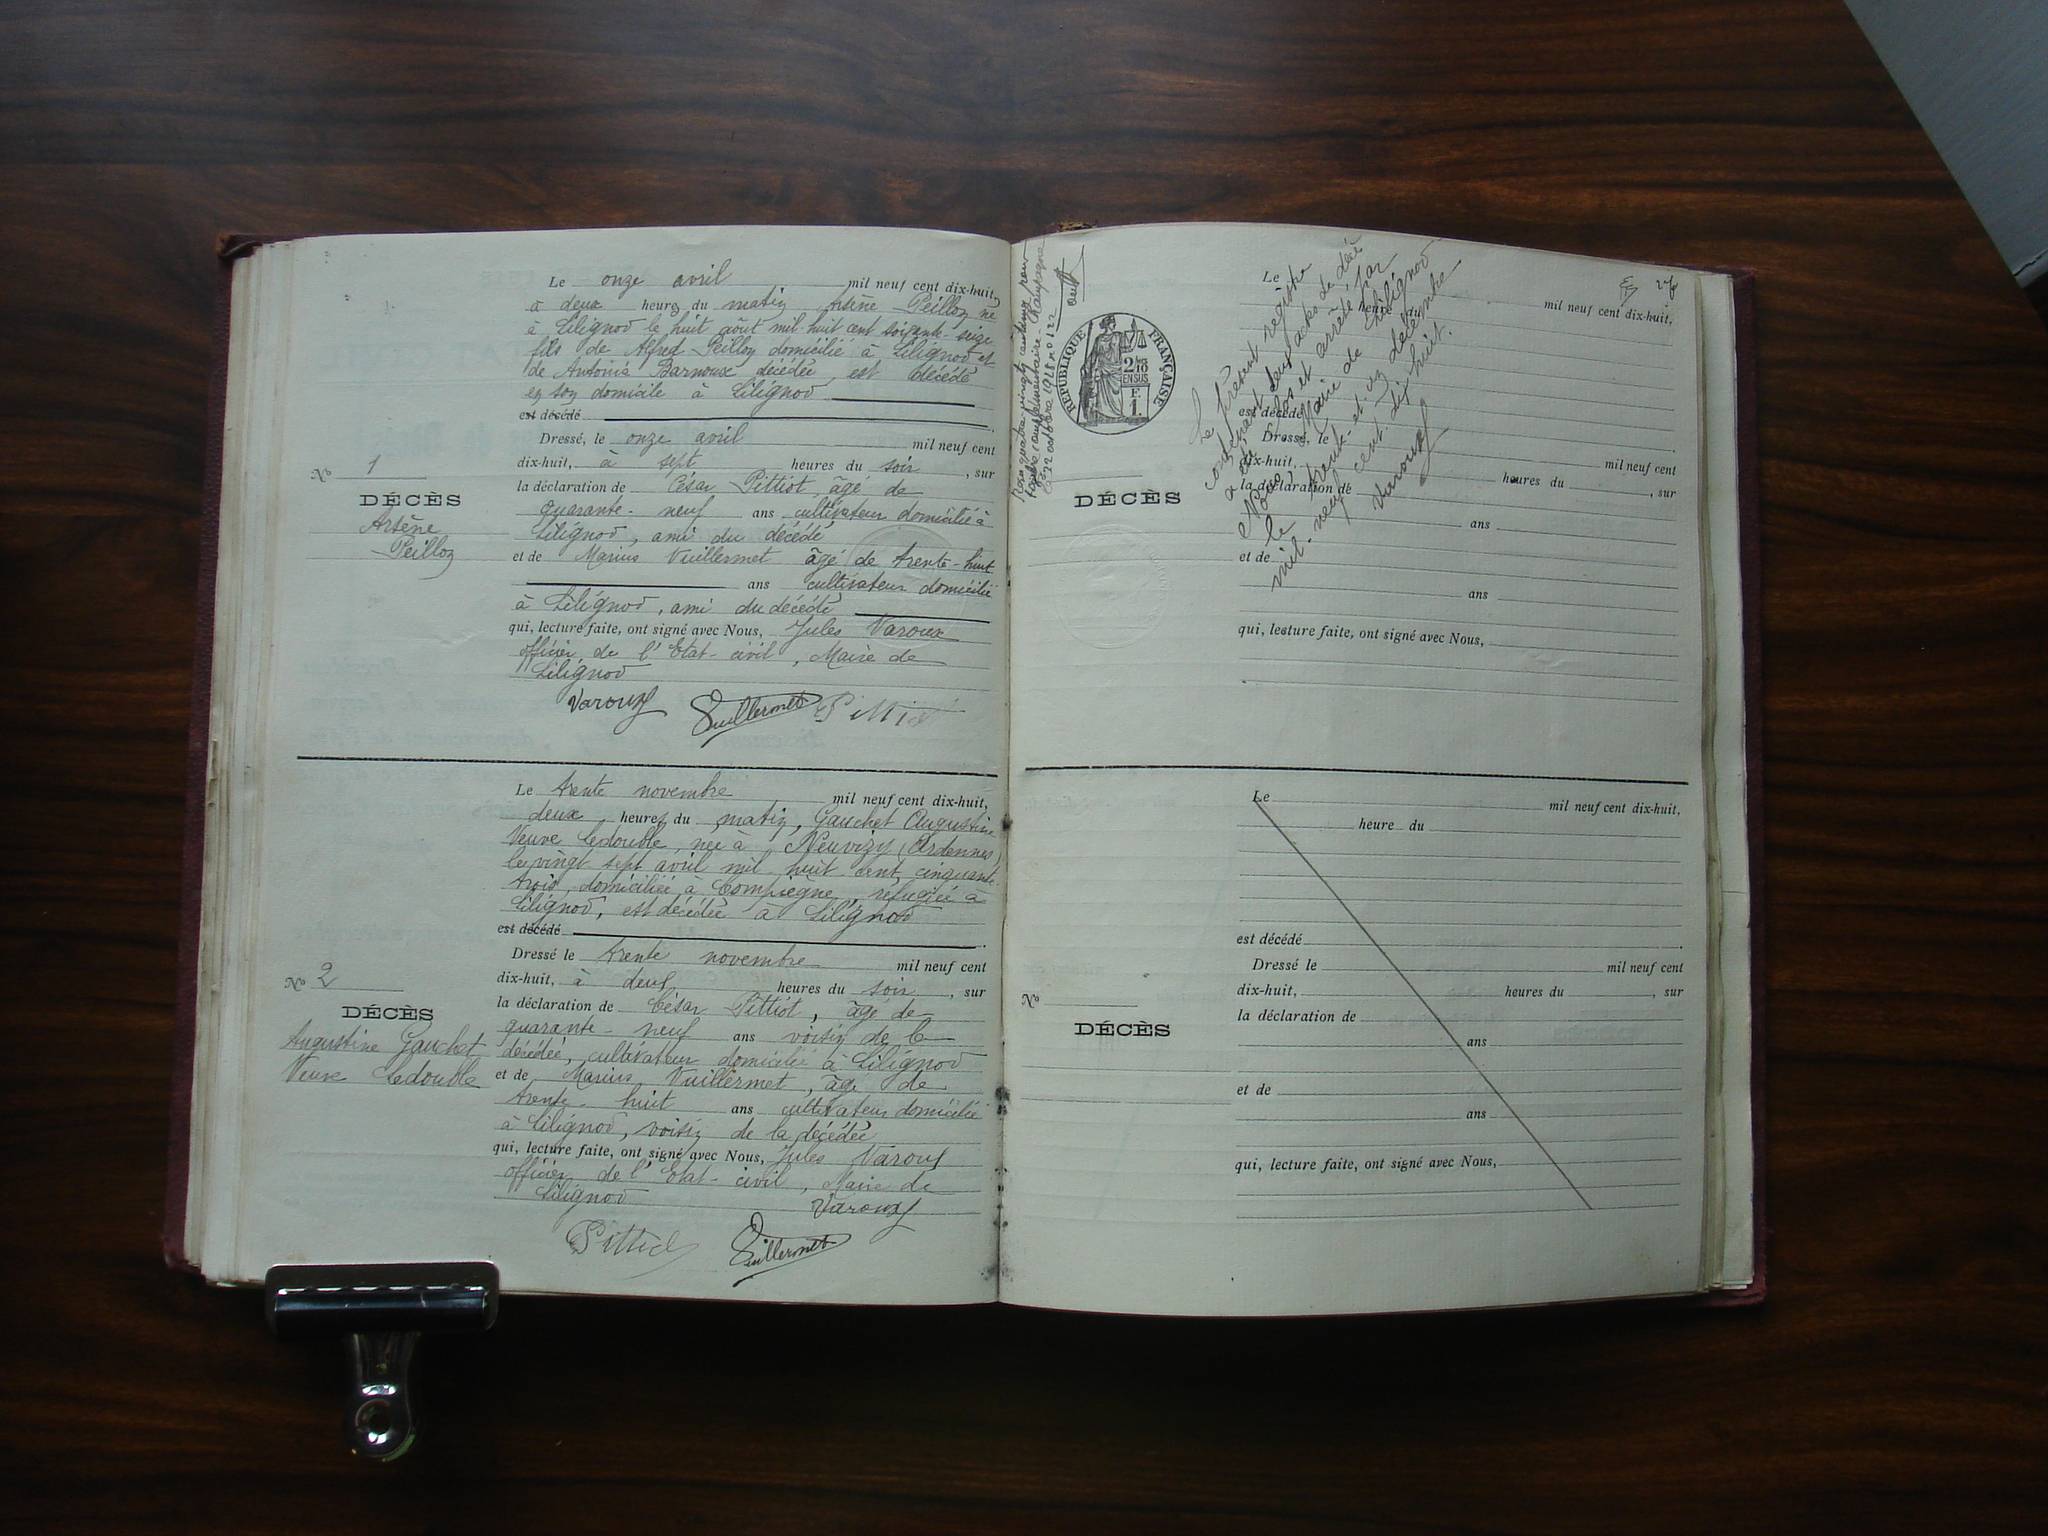 Le onze avril mil neuf cent dix-huit,
à deux heures du matin Arsène Peilloz né
à Lilignod le huit août mil-huit cent soixante-seize
fils de Alfred Peilloz domicilié à Lilignod et
de Antonia Barnoux décédée, est décédé
en son domicile à Lilignod
est décédé
Dressé, le onze avril mil neuf cent
dix-huit, à sept heures du soir, sur
la déclaration de César Pittiot âgé de
quarante-neuf ans cultivateur domicilié à
Lilignod, ami du décédé
et de Marius Vuillermet âgé de trente-huit
ans cultivateur domicilié
à Lilignod, ami du décédé
qui, lecture faite, ont signé avec Nous, Jules Varoux
officier de l'Etat-civil, Maire de
Lilignod
Varoux Vuillermet Pittiot
No 1
DÉCÈS
Arsène
Peilloz
Le trente novembre mil neuf cent dix-huit,
deux heures du matin, Gauchet Augustine
Veuve Ledouble, née à Neuvizy (Ardennes)
le vingt sept avril mil huit cent cinquante-
trois, domiciliée à Compiègne, réfugiée à
Lilignod, est décédée à Lilignod
est décédé
Dressé le trente novembre mil neuf cent
dix-huit, à deux heures du soir, sur
la déclaration de César Pittiot, âgé de
quarante-neuf ans voisin de la
décédée, cultivateur domicilié à Lilignod
et de Marius Vuillermet, âgé de
trente-huit ans cultivateur domicilié
à Lilignod, voisin de la décédée
qui, lecture faite, ont signé avec Nous, Jules Varoux
officier de l'Etat-civil, Maire de
Lilignod
Varoux
Pittiot Vuillermet
No 2
DÉCÈS
Augustine Gauchet
Veuve Ledouble
RÉPUBLIQUE FRANÇAISE
2/10
EN SUS
F.
1.
Le mil neuf cent dix-huit,
heure du
est décédé
Dressé, le mil neuf cent
dix-huit, heures du , sur
la déclaration de
ans
et de
ans
qui, lecture faite, ont signé avec Nous,
DÉCÈS
Le présent registre
contenant deux actes de décès
a été clos et arrêté par
Nous, Maire de Lilignod
le trente-et-un décembre
mil-neuf cent dix huit.
Varoux
Le mil neuf cent dix-huit,
heure du
est décédé
Dressé le mil neuf cent
dix-huit, heures du , sur
la déclaration de
ans
et de
ans
qui, lecture faite, ont signé avec Nous,
No
DÉCÈS